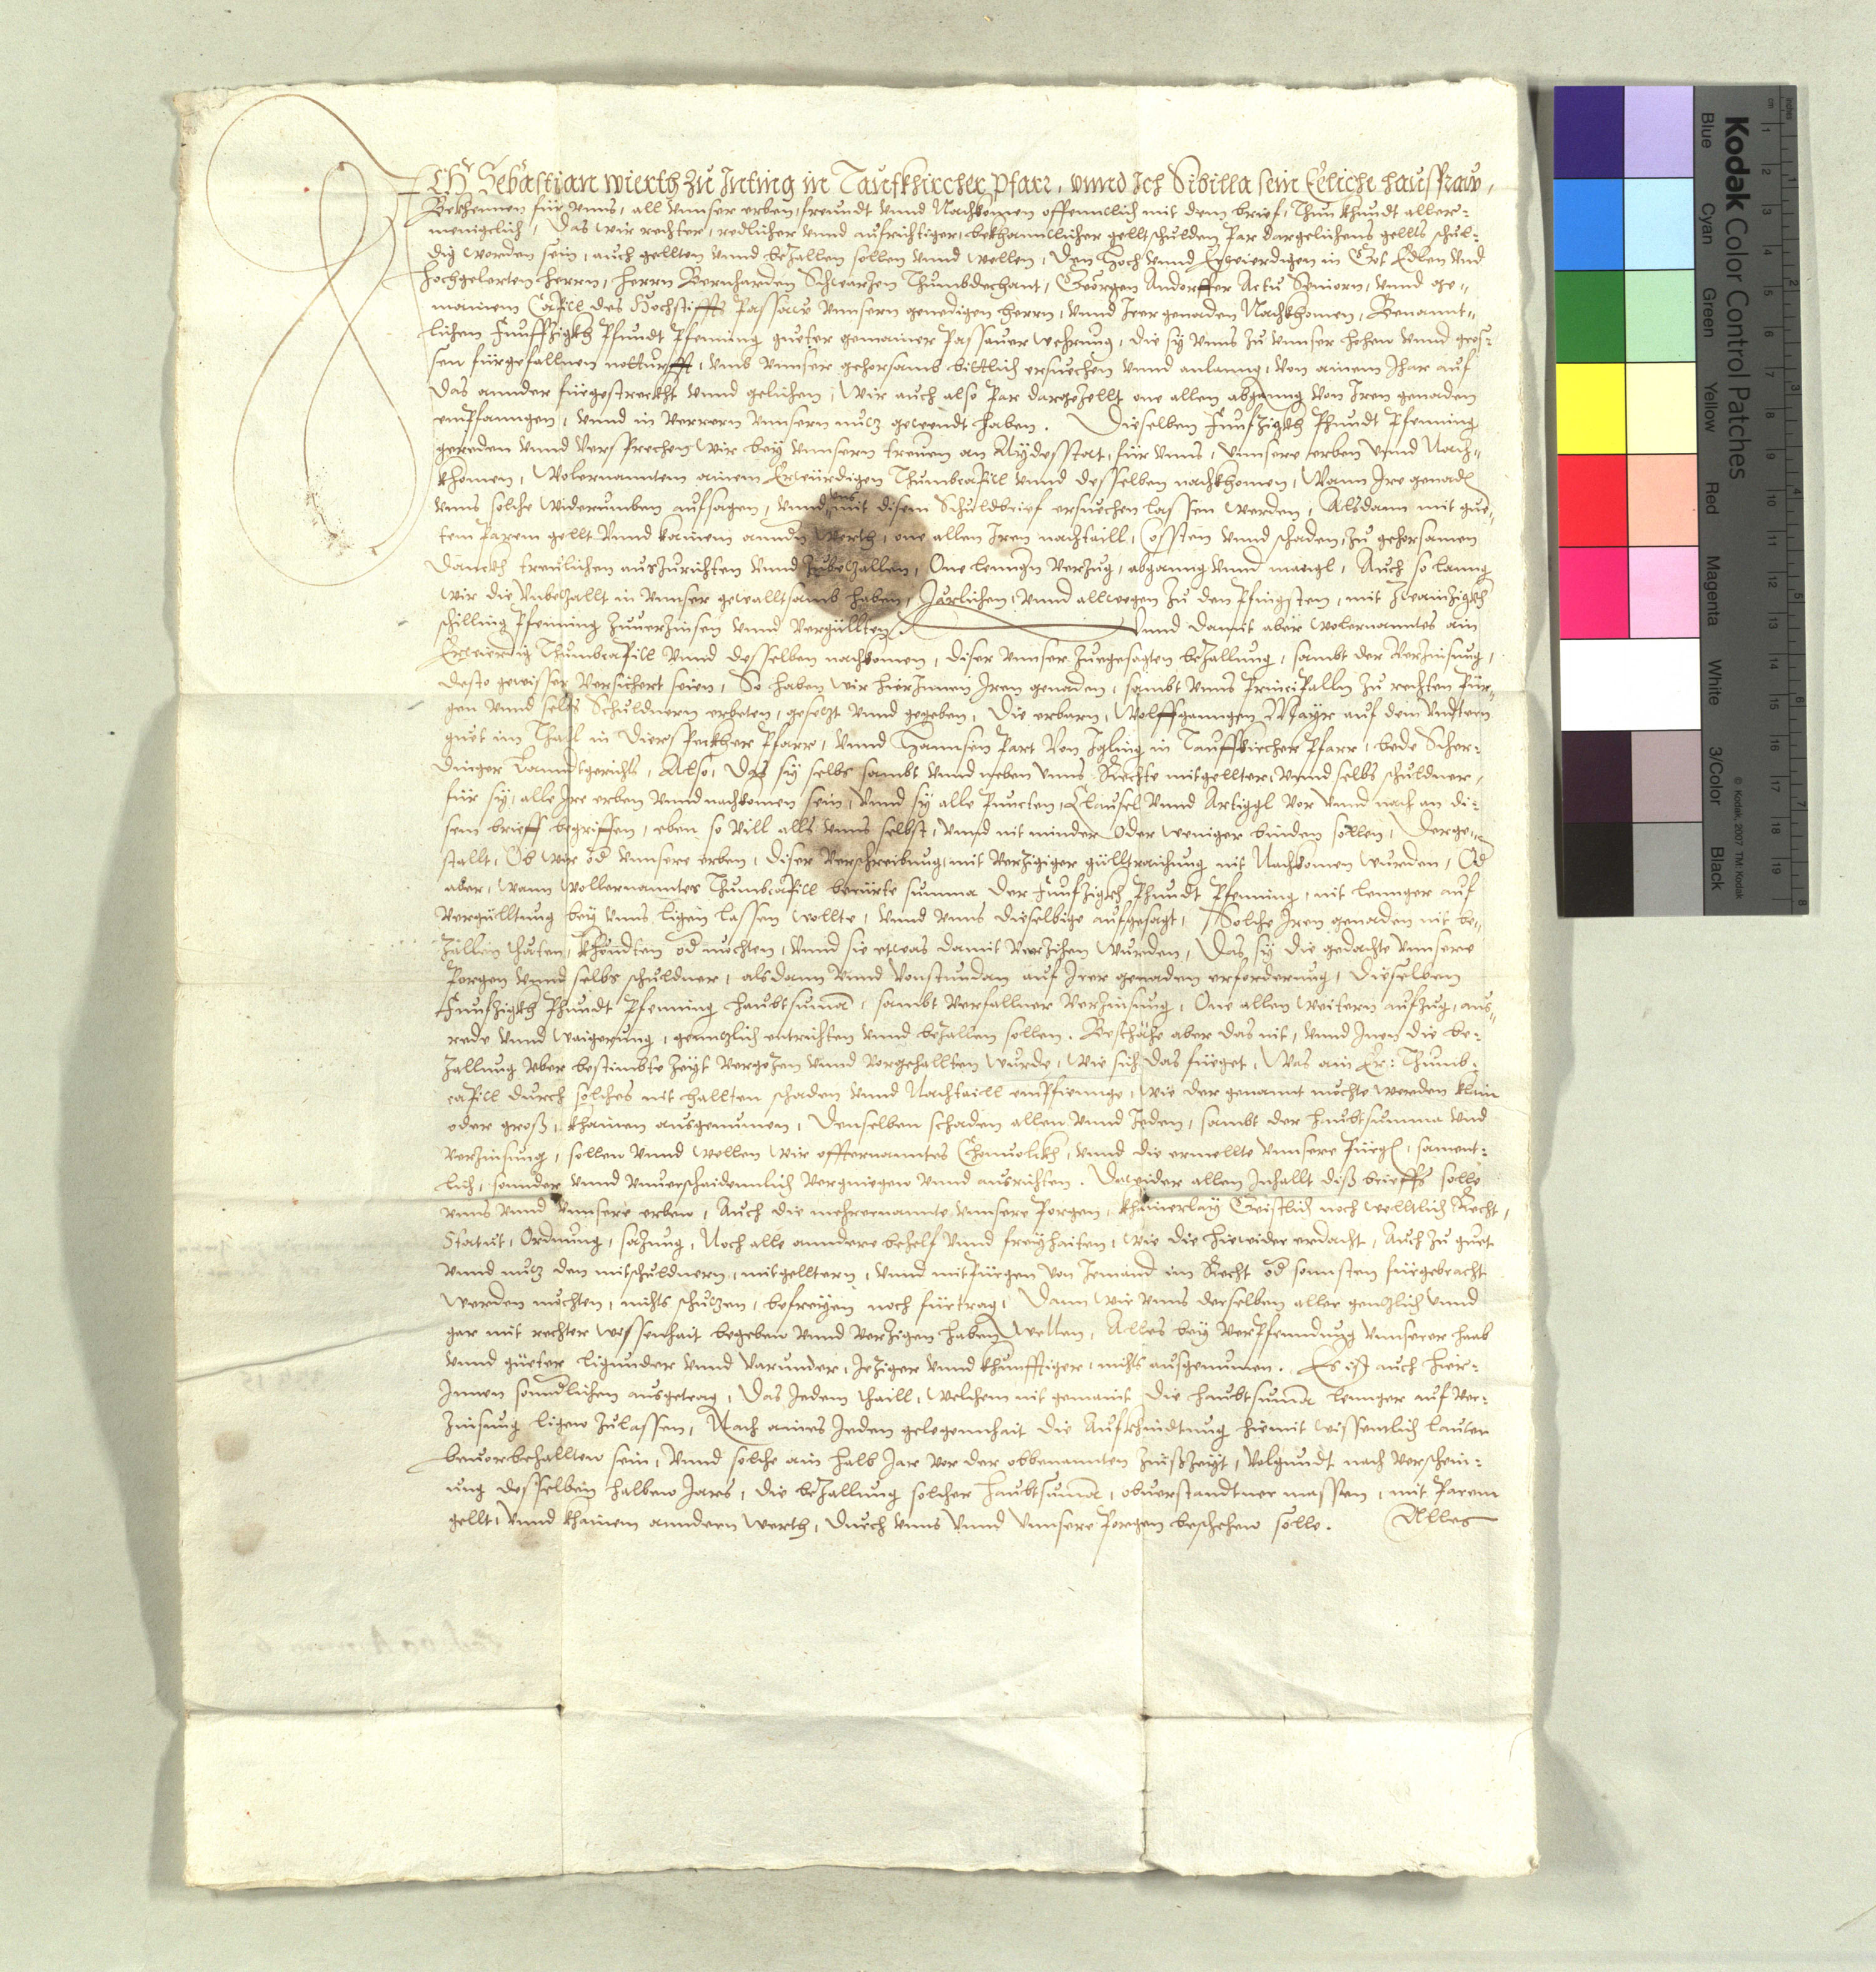 ICH Sebastian wierth zu Inting in Taufkhircher Pfarr, vnnd Ich Sibilla sein Eeliche hausfraw,
Bekhennen für vnns, all vnnser erben, freundt vnnd Nachkomen offenntlich mit dem brief, Thun khundt aller-
menigclich, Das wir rechter, redlicher vnnd aufrichtiger, bekhanntlicher gellt schulden Par dargelichens gellts schul-
dig worden sein, auch gellten vnnd bezallen sollen vnnd wellen, Den Hoch vnnd Erwierdigen in Got Edlen vnd
hochgelerten herrn, herrn Bernharden Schwarzen Thumbdechant, Georgen Andorffer Actu Seniorn, vnnd ge-
mainem Capitl des Hochstiffts Passaw vnnsern genedigen herrn, vnnd Irer genaden Nachkhomen, Benannt-
lichen Funffzigkh Pfundt Pfenning gueter gemainer Passauer wehrung, die sy vnns zu vnnser hohen vnnd gros-
sen fürgefallnen notturfft, vmb vnnser gehorsamb bittlich ersuechen vnnd anlanng, von ainem Jhar auf
das annder fürgestreckht vnnd gelichen, Wir auch also Par dargezellt one allen abganng von Iren genaden
empfanngen, vnnd in verrern vnnsern nutz gewendt haben. Dieselben Funfzigkh Phundt Pfenning
gereden vnnd versprechen wir bey vnnsern treuen an Aydesstat, für vnns, vnnsere erben vnnd Nach-
khomen, Wolernanntem ainem Erwürdigen Thumbcapitl vnnd desselben nachkhomen, Wann Ire genad
vnns solche widerumben aufsagen, vnnd vns mit disem Schuldbrief ersuechen lassen werden, Alsdann mit gue-
tem Parem gellt vnnd kainem anndern werth, one allen Iren nachtaill, Cossten vnnd schaden, zu gehorsamen
Danckh treulichen auszurichten vnnd zubezallen, One lenngern verzug, abganng vnnd manngl, Auch so lanng
wir die vnbezallt in vnnser gewalltsamb haben, Järlichen, vnnd allwegen zu den Pfingsten, mit zwainzigkh
schilling Pfenning zuuerzinsen vnnd vergüllten. Vnnd damit aber wolernanntes ain
Erwierdig Thumbcapitl vnnd desselben nachkomen, diser vnnser zuegesagten bezallung, sambt der Verzinsung,
desto gewisser versichert seien, So haben wir hierInnen Iren genaden, sambt vnns Principalln zu rechten Pür-
gen vnnd selbs Schuldnern erbeten, gesetzt vnnd gegeben, Die erbarn, Wolffganngen Mayr auf dem vndtern
guet im Thall in Dierspeckher Pfarr, vnnd Hannsen Part von Igling in Tauffkircher Pfarr, bede Scher-
dinger Lanndtgerichts, Also, das sy selbs sambt vnnd neben vnns Rechte mitgellter, vnnd selbs schuldner,
für sy, alle Ire erben vnnd nachkomen sein, Vnnd sy alle Puncten, Clausel vnnd Artiggl vor vnnd nach an di-
sem brieff begriffen, eben so vill alls vnns selbst, vnnd nit minder oder weniger binden sollen, derge-
stallt, Ob wir od vnnsere erben, diser verschreibung, mit verzigiger gülltraichung nit Nachkomen wurden, Od
aber, wann wollernanntes Thumbcapitl berürte summa der Funfzigkh Phundt Pfenning, nit lennger auf
vergülltung bey vnns ligen lassen wollte, vnnd vnns dieselbige aufgesagt, Solche Iren genaden nit be-
zallen theten, khöndten od mochten, vnnd sie etwas damit verzihen wurden, Das sy die gedachte vnnsere
Porgen vnnd selbs schuldner, alsdann vnnd vonstundan auf Irer genaden erforderung, dieselben
Funfzigkh Phundt Pfenning haubtsuma, sambt verfallner verzinsung, One allen weitern aufzug, aus-
rede vnnd waigerung, genntzlich entrichten vnnd bezallen sollen. Beschähe aber das nit, vnnd Inen die be-
zallung vber bestimbte zeyt verzogen vnnd vorgehallten wurde, wie sich das füeget, Was ain Er: Thumb-
capitl durch solches nit hallten schaden vnnd Nachtaill empfienge, wie der genannt mochte werden klain
oder groß, khainen ausgenumen, Denselben schaden allen vnnd Jeden, sambt der haubtsumma vnd
verzinsung, sollen vnnd wollen wir offternanntes Chonuolkh, vnnd die ermellte vnnsere Pürg, sament-
lich, sonnder vnnd vnuerschaidennlich vergnüegen vnnd ausrichten. Dawider allen Inhallt diß brieffs solle
vnns vnnd vnnsere erben, Auch die mehrernannte vnnsere Porgen, khainerlay Geistlich noch welltlich Recht,
Statut, Ordnung, sazung, Noch alle anndere behelf vnnd freyhaiten, wie die hiewider erdacht, Auch zu guet
vnnd nutz den mitschuldnern, mitgelltern, vnnd mitpürgen von Jemand im Recht od sonnsten fürgebracht
werden möchten, nichts schutzen, befreyen noch fürtrag, Dann wir vnns derselben aller genntzlich vnnd
gar mit rechter wissenhait begeben vnnd verzigen haben wellen, Alles bey verpfenndung vnnserer haab
vnnd güeter ligunder vnnd varunder, Jeziger vnnd khunfftiger, nichts ausgenumen. Es ist auch hier-
Innen sonndlichen ausgetrag, Das Jedem thaill, welchem nit gemaint die haubtsuma lennger auf ver-
zinsung ligen zulassen, Nach aines Jeden gelegennhait die Aufkhündtung hiemit wissentlich lauter
beuorbehallten sein, Vnnd solche ain halb Jar vor der obbenannten zinßzeyt, Volgundt nach verschein-
ung desselben halben Jars, die bezallung solcher haubtsuma, obuerstandtner massen, mit Parem
gellt, vnnd khainem anndern werth, durch vnns vnnd vnnsere Porgen beschehen solle. Alles